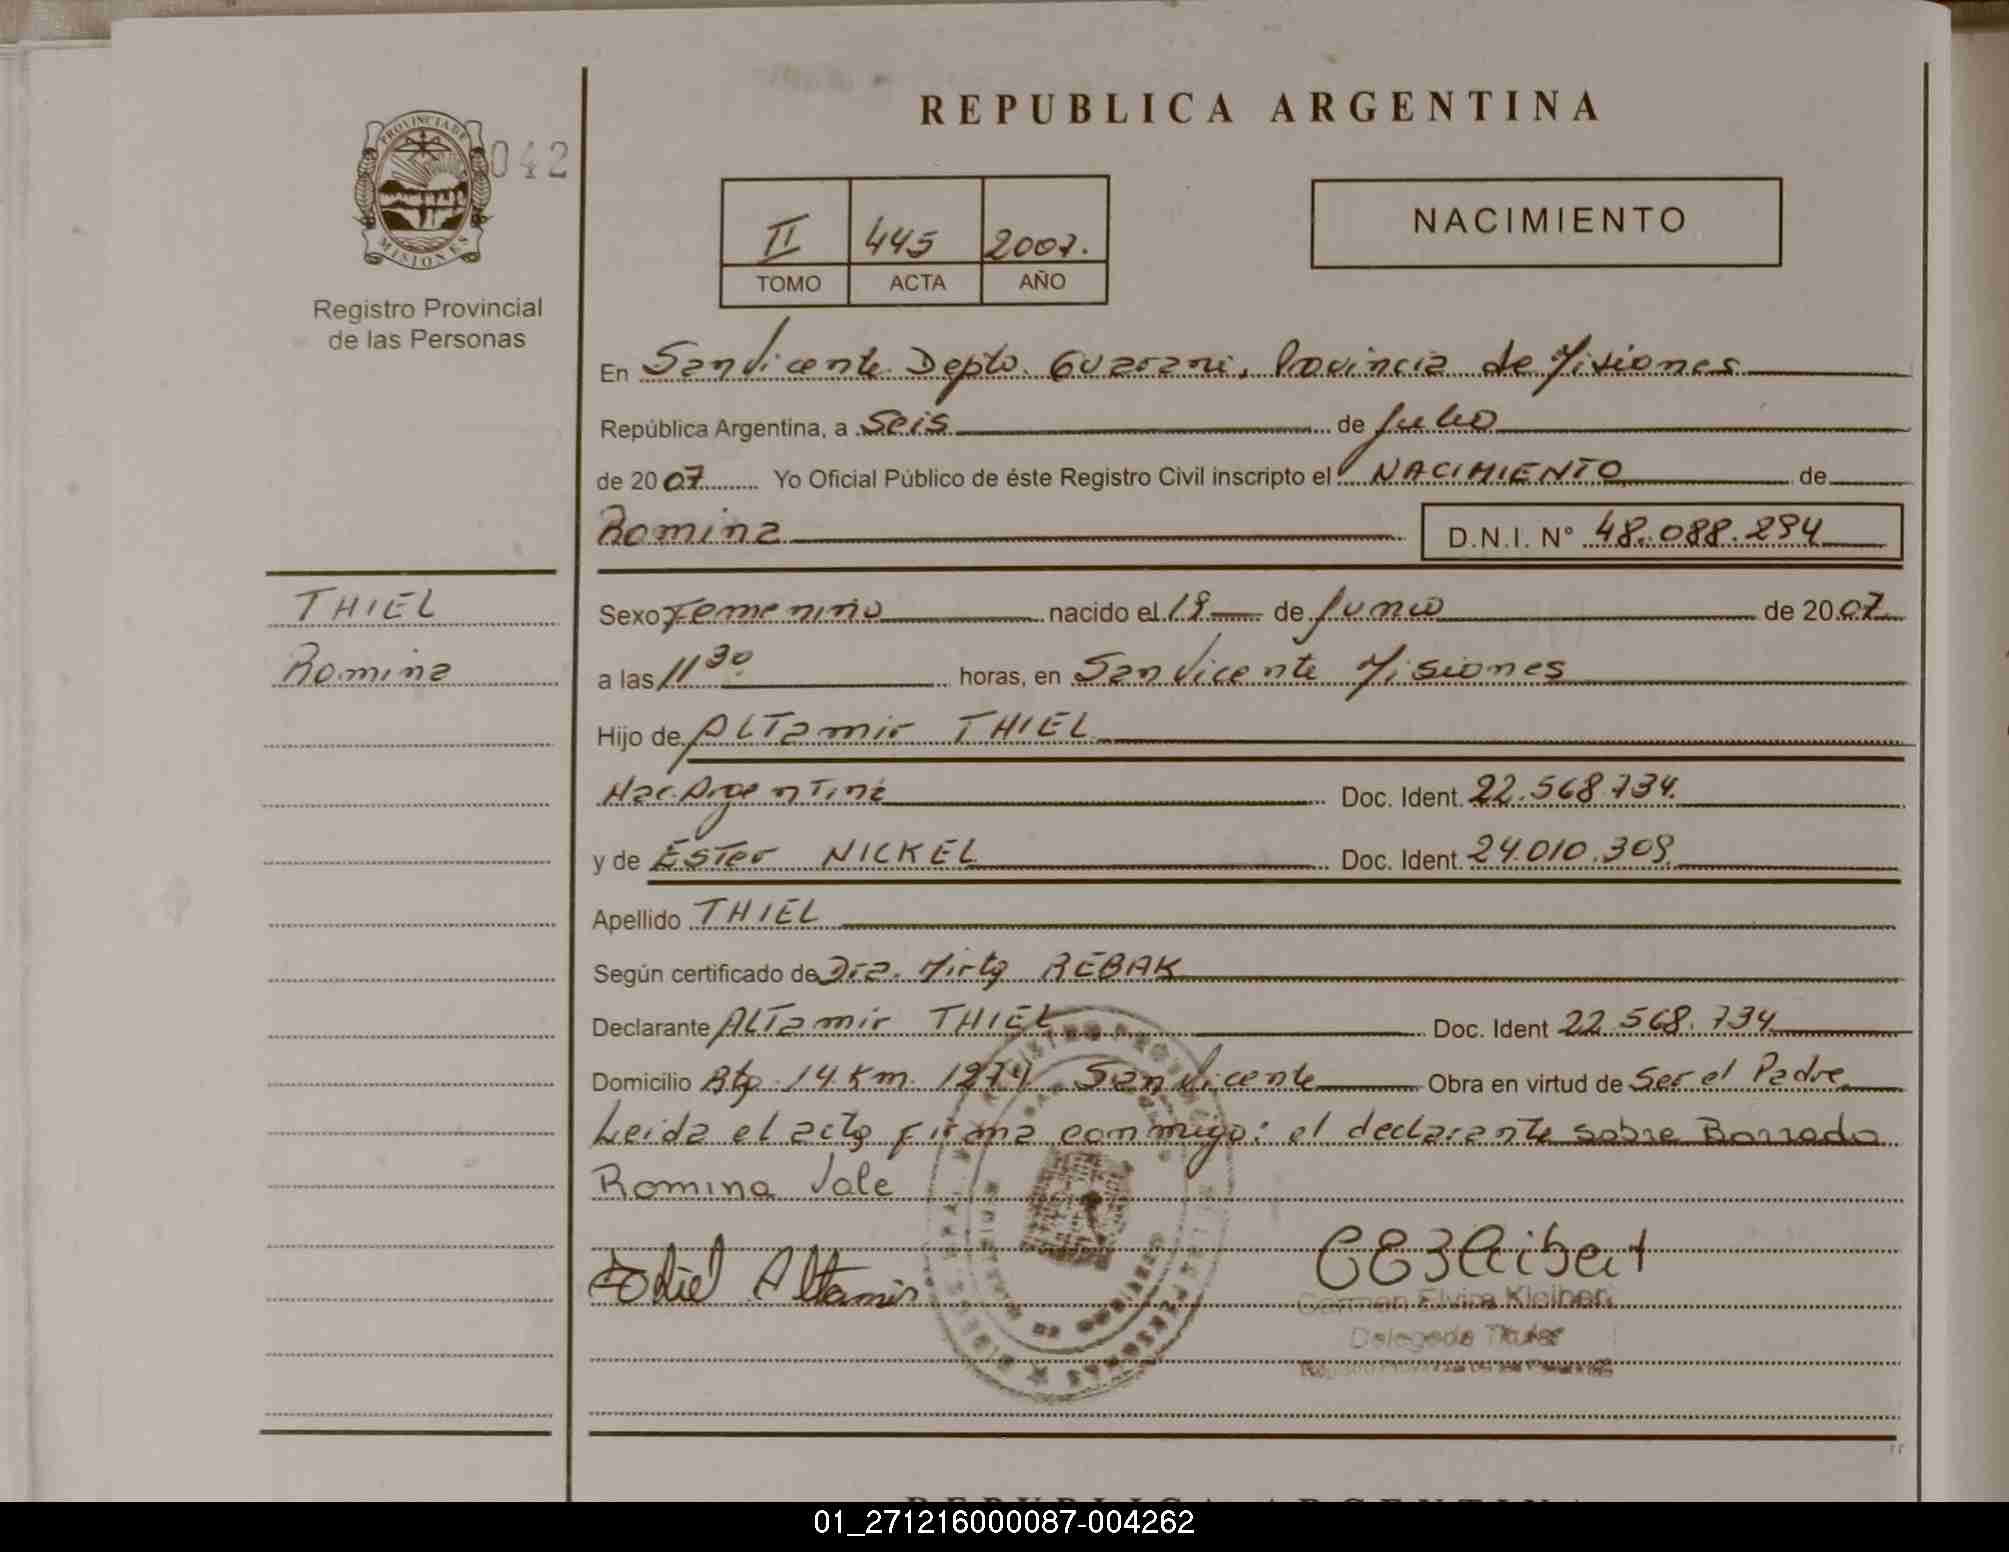 REPUBLICA ARGENTINA
PROVINCIA DE
MISIONES
042
Registro Provincial
de las Personas
II 445 2007.
TOMO ACTA AÑO
NACIMIENTO
En San Vicente Depto. Guarani, Provincia de Misiones
República Argentina, a Seis de Julio
de 2007 Yo Oficial Público de éste Registro Civil inscripto el NACIMIENTO de
Romina D.N.I. N° 48.088.294
THIEL
Romina
Sexo Femenino nacido el 19 de Junio de 2007
a las 11 30 horas, en San Vicente Misiones
Hijo de ALTamir THIEL
Nac. Argentina Doc. Ident. 22.568.734.
y de ESTer NICKEL Doc. Ident. 24.010.309.
Apellido THIEL
Según certificado de Dra. Mirta REBAK
Declarante ALTamir THIEL Doc. Ident 22.568.734
Domicilio Rta. 14 Km. 1274 San Vicente Obra en virtud de Ser el Padre
Leida el acta firma conmigo: el declarante sobre Borrado
Romina Vale
Thiel Altamir
Carmen Elvira Kleibert
Delegada Titular
REPUBLICA ARGENTINA
01_271216000087-004262